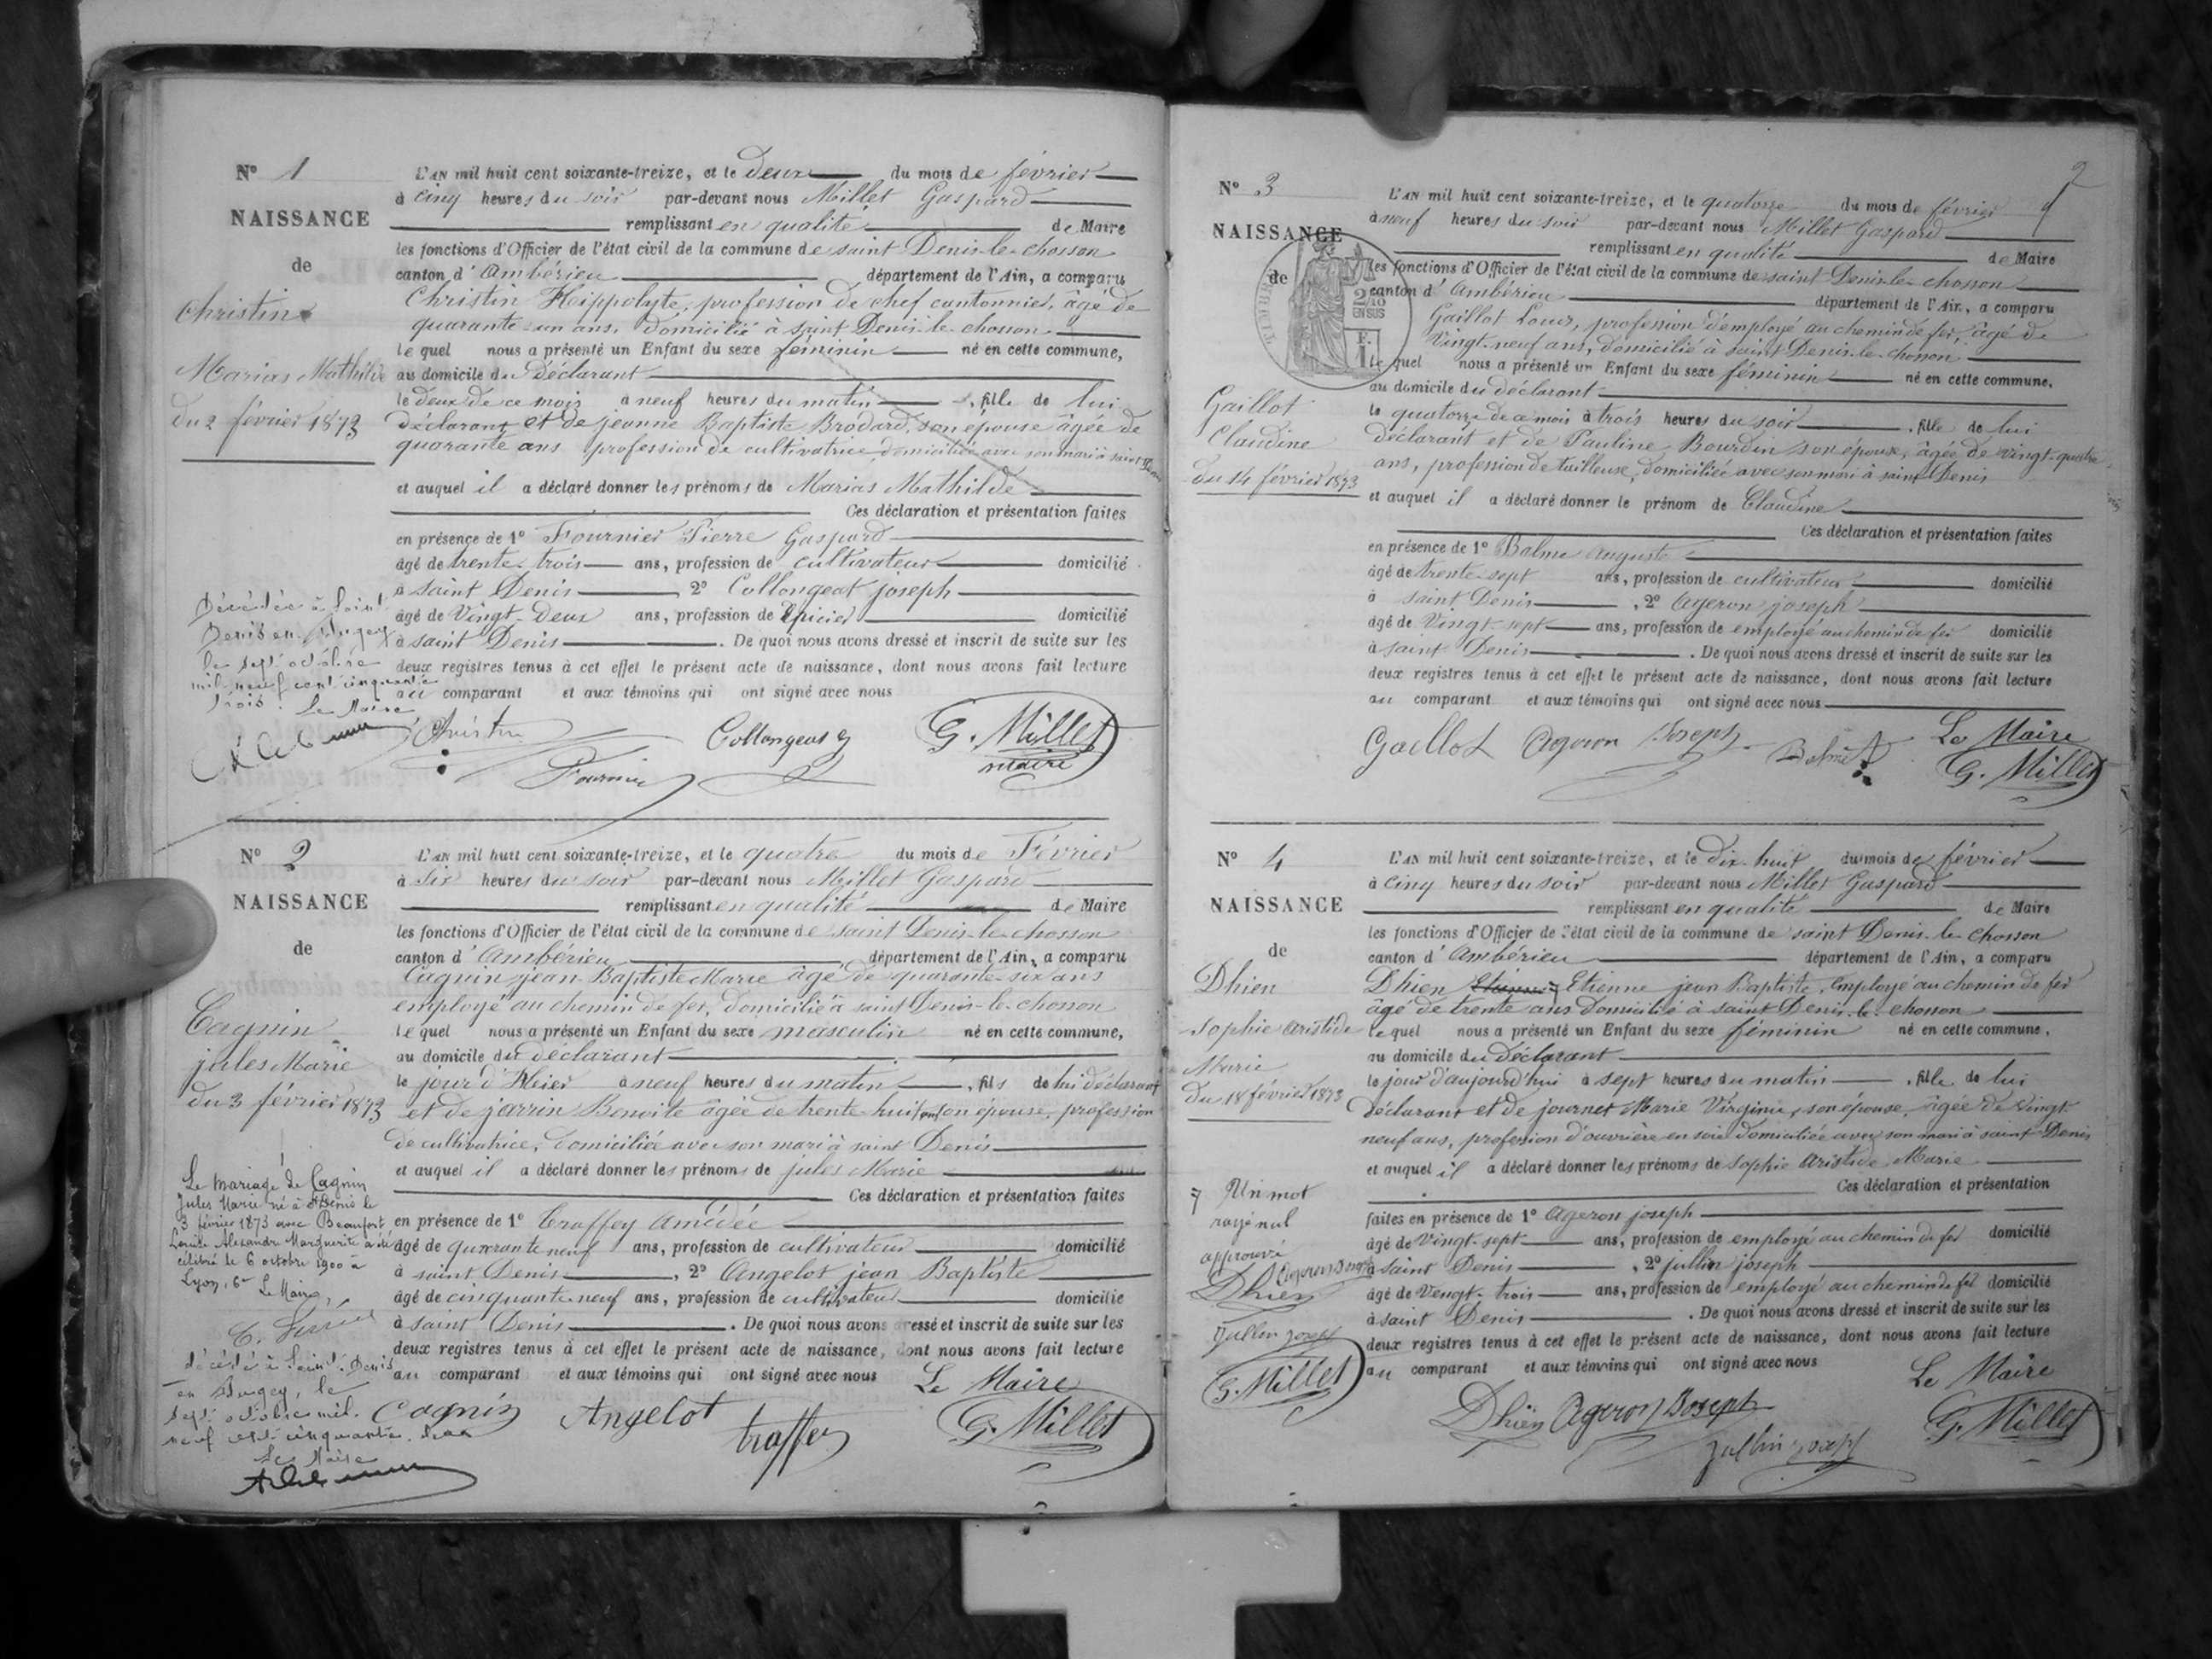 N° 1
NAISSANCE
de
Christin
Marias Mathilde
du 2 février 1873
L'AN mil huit cent soixante-treize, et le deux du mois de février
à cinq heures du soir par-devant nous Millet Gaspard
remplissant en qualité de Maire
les fonctions d'Officier de l'état civil de la commune de saint Denis-le-chosson
canton d'Ambérieu département de l'Ain, a comparu
Christin Heippolyte, profession de chef cantonnier, âgé de
quarante-un ans, domicilié à saint Denis-le-chosson
lequel nous a présenté un Enfant du sexe féminin né en cette commune,
au domicile du déclarant
le deux de ce mois à neuf heures du matin, fille de lui
déclarant et de jeanne Baptiste Brodard, son épouse âgée de
quarante ans profession de cultivatrice, domiciliée avec son mari à saint Denis
et auquel il a déclaré donner les prénoms de Marias Mathilde
Ces déclaration et présentation faites
en présence de 1° Fournier Pierre Gaspard
âgé de trente-trois ans, profession de cultivateur domicilié
à saint Denis, 2° Collongeat joseph
âgé de Vingt-deux ans, profession de Epicier domicilié
à saint Denis. De quoi nous avons dressé et inscrit de suite sur les
deux registres tenus à cet effet le présent acte de naissance, dont nous avons fait lecture
au comparant et aux témoins qui ont signé avec nous
Décédée à Saint
Denis en Bugey
le sept octobre
mil neuf cent cinquante
trois. Le Maire
Christin Collongeat G. Millet
Fournier maire
N° 2
NAISSANCE
de
Cagnin
jules Marie
du 3 février 1873
L'AN mil huit cent soixante-treize, et le quatre du mois de Février
à six heures du soir par-devant nous Millet Gaspard
remplissant en qualité de Maire
les fonctions d'Officier de l'état civil de la commune de saint Denis-le-chosson
canton d'Ambérieu département de l'Ain, a comparu
Cagnin jean-Baptiste Marie âgé de quarante-six ans
employé au chemin de fer, domicilié à saint Denis-le-chosson
lequel nous a présenté un Enfant du sexe masculin né en cette commune,
au domicile du déclarant
le jour d'Heier à neuf heures du matin, fils de lui déclarant
et de jarrin Benoite âgée de trente-huit ans son épouse, profession
de cultivatrice, domiciliée avec son mari à saint Denis
et auquel il a déclaré donner les prénoms de jules Marie
Ces déclaration et présentation faites
en présence de 1° Traffey Amédée
âgé de quarante neuf ans, profession de cultivateur domicilié
à saint Denis, 2° Angelot jean Baptiste
âgé de cinquante-neuf ans, profession de cultivateur domicilié
à saint Denis. De quoi nous avons dressé et inscrit de suite sur les
deux registres tenus à cet effet le présent acte de naissance, dont nous avons fait lecture
au comparant et aux témoins qui ont signé avec nous
Le mariage de Cagnin
Jules Marie né à St Denis le
3 février 1873 avec Beaufort
Louise Alexandre Marguerite a été
célébré le 6 octobre 1900 à
Lyon, 6e Le Maire,
décédé à Saint-Denis
en Bugey, le
sept octobre mil
neuf cent cinquante
Le Maire
Le Maire
Cagnin Angelot traffey G. Millet
2
N° 3
NAISSANCE
de
Gaillot
Claudine
du 14 février 1873
TIMBRE
2/10
EN SUS
L'AN mil huit cent soixante-treize, et le quatorze du mois de février
à neuf heures du soir par-devant nous Millet Gaspard
remplissant en qualité de Maire
les fonctions d'Officier de l'état civil de la commune de saint Denis-le-chosson
canton d'Ambérieu département de l'Ain, a comparu
Gaillot Louis, profession d'employé au chemin de fer, âgé de
Vingt-neuf ans, domicilié à saint Denis-le-chosson
lequel nous a présenté un Enfant du sexe féminin né en cette commune,
au domicile du déclarant
le quatorze de ce mois à trois heures du soir, fille de lui
déclarant et de Pauline Bourdin son épouse, âgée de vingt-quatre
ans, profession de tailleuse, domiciliée avec son mari à saint Denis
et auquel il a déclaré donner le prénom de Claudine
Ces déclaration et présentation faites
en présence de 1° Balme Auguste
âgé de trente-sept ans, profession de cultivateur domicilié
à saint Denis, 2° Ageron joseph
âgé de Vingt-sept ans, profession de employé au chemin de fer domicilié
à saint Denis. De quoi nous avons dressé et inscrit de suite sur les
deux registres tenus à cet effet le présent acte de naissance, dont nous avons fait lecture
au comparant et aux témoins qui ont signé avec nous
Gaillot Ageron Joseph Balme A Le Maire
G. Millet
N° 4
NAISSANCE
de
Dhien
Sophie Aristide
Marie
du 18 février 1873
L'AN mil huit cent soixante-treize, et le Dix-huit du mois de février
à cinq heures du soir par-devant nous Millet Gaspard
remplissant en qualité de Maire
les fonctions d'Officier de l'état civil de la commune de saint Denis-le-chosson
canton d'Ambérieu département de l'Ain, a comparu
Dhien Etienne Etienne jean Baptiste, employé au chemin de fer
âgé de trente ans domicilié à saint Denis-le-chosson
lequel nous a présenté un Enfant du sexe féminin né en cette commune,
au domicile du déclarant
le jour d'aujourd'hui à sept heures du matin, fille de lui
déclarant et de journet Marie Virginie, son épouse, âgée de Vingt-
neuf ans, profession d'ouvrière en soie domiciliée avec son mari à saint Denis
et auquel il a déclaré donner les prénoms de Sophie Aristide Marie
Ces déclaration et présentation
faites en présence de 1° Ageron joseph
âgé de Vingt-sept ans, profession de employé au chemin de fer domicilié
à saint Denis, 2° jullin joseph
âgé de Vengt-trois ans, profession de employé au chemin de fer domicilié
à saint Denis. De quoi nous avons dressé et inscrit de suite sur les
deux registres tenus à cet effet le présent acte de naissance, dont nous avons fait lecture
au comparant et aux témoins qui ont signé avec nous
Un mot
rayé nul
approuvé
Ageron Joseph
Dhien
Jullin joseph
G. Millet
Le Maire
Dhien Ageron Joseph G. Millet
Jullin joseph